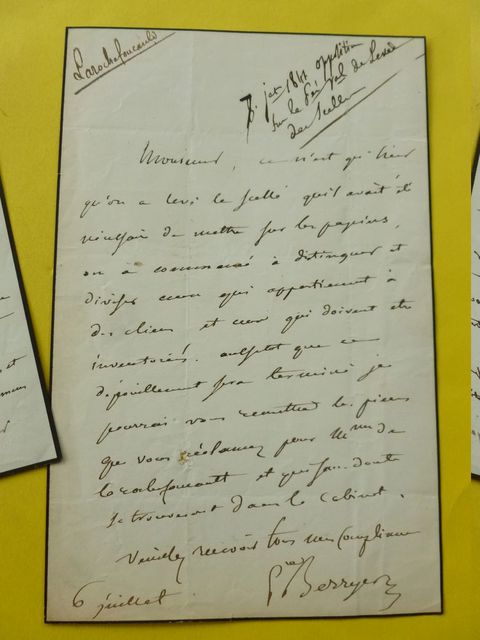 Larochefoucauld
7. jet 1841 opposition
sur le Pés Val de Levée
de Scellés
Monsieur, ce n'est qu'hier
qu'on a levé le scellé qu'il avait été
nécessaire de mettre sur les papiers,
on a commencé à distinguer et
diviser ceux qui appartient à
des cliens et ceux qui doivent etre
inventoriés. aussitot que ce
dépouillement sera terminé je
pourrai vous remettre les pieces
que vous réclamez pour Mme de
larochefoucault et qui sans doute
se trouveront dans le cabinet.
Veuillez recevoir tous mes complimens
Berryer
6 juillet
et